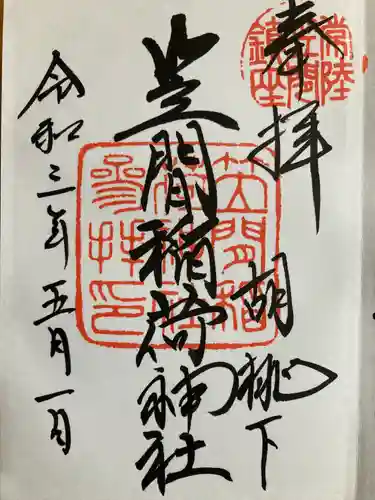 奉拝
胡桃下
常陸
笠間
鎮座
笠間稲荷神社
笠間稲
荷神社
参拝印
令和三年五月一日